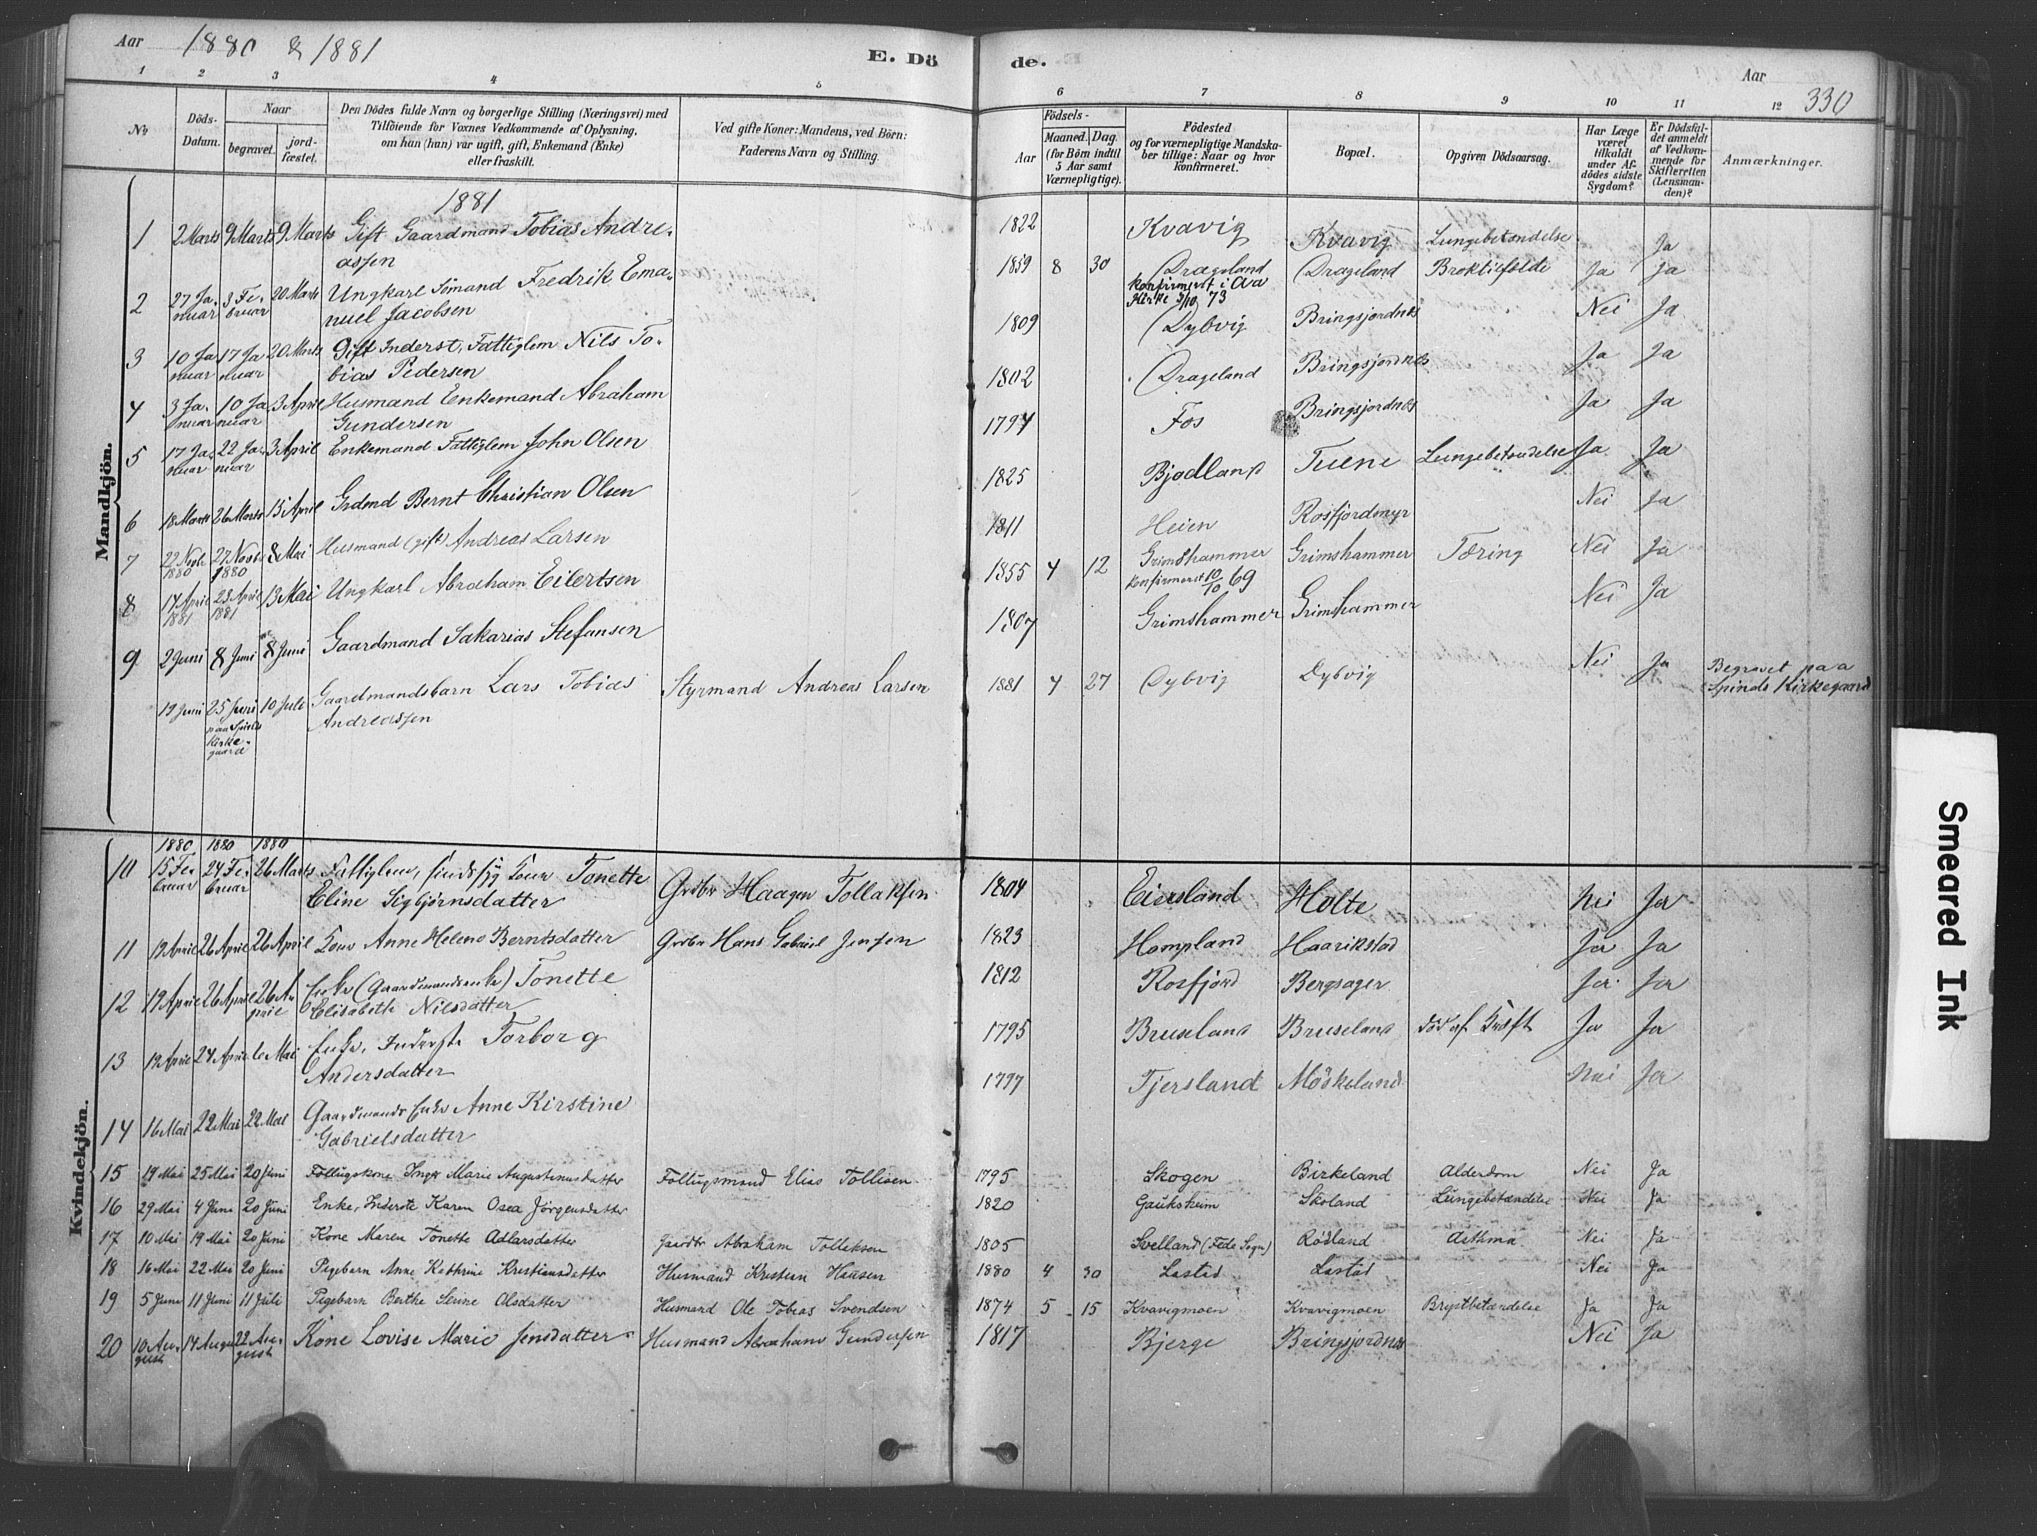 Aar 1880 & 1881
E. Dö de.
Aar 330
1 2 3 4 5 6 7 8 9 10 11 12
No
Döds-
Datum.
Naar
begravet. jord-
fæstet.
Den Dödes fulde Navn og borgerlige Stilling (Næringsvei) med
Tilföiende for Voxnes Vedkommende af Oplysning,
om han (hun) var ugift, gift, Enkemand (Enke)
eller fraskilt.
Ved gifte Koner: Mandens, ved Börn:
Faderens Navn og Stilling.
Födsels-
Aar Maaned. Dag.
(for Börn indtil
5 Aar samt
Værnepligtige).
Födested
og for værnepligtige Mandska-
ber tillige: Naar og hvor
konfirmeret.
Bopæl.
Opgiven Dödsaarsag.
Har Læge
været
tilkaldt
under Af-
dödes sidste
Sygdom?
Er Dödsfal-
det anmeldt
af Vedkom-
mende for
Skifteretten
(Lensman-
den)?
Anmærkninger.
Mandkjön.
1881
1 2 Marts 9 Marts 9 Marts Gift Gaardmand Tobias Andre- 1822 Kvavig Kvavig Lungebetændelse Ja
assen
2 27 Ja- 3 Fe- 20 Marts Ungkarl Sömand Fredrik Ema- 1859 8 30 Drageland Drageland Ja Ja
nuar bruar nuel Jacobsen konfirmeret i Aa
Kirke 5/10 73
3 10 Ja 17 Ja 20 Marts Gift Inderst, Fattiglem Nils To- 1809 Dybvig Bringsjordnes Nei Ja
nuar nuar bias Pedersen
4 3 Ja- 10 Ja 3 April Husmand Enkemand Abraham 1802 Drageland Bringsjordnes Ja Ja
nuar nuar Gundersen
5 17 Ja- 22 Ja- 3 April Enkemand Fattiglem John Olsen 1794 Fos Bringsjordnes Ja Ja
nuar nuar
6 18 Marts 26 Marts 15 April Grdmd Bernt Christian Olsen 1825 Bjodland Tuene Lungebetændelse Ja Ja
7 22 Novbr 27 Novbr 8 Mai Husmand (gift) Andreas Larsen 1811 Heien Rosfjordmyr Nei Ja
1880 1880
8 17 April 23 April 13 Mai Ungkarl Abraham Eilertsen 1855 4 12 Grimshammer Grimshammer Tæring Nei Ja
1881 1881 konfirmeret 10/10 69
9 2 Juni 8 Juni 8 Juni Gaardmand Sakarias Stefansen 1807 Grimshammer Grimshammer Nei Ja
19 Juni 25 Juni 10 Juli Gaardmandsbarn Lars Tobias Styrmand Andreas Larsen 1881 4 27 Dybvig Dybvig Nei Ja Begravet paa
paa Spinds Andreassen Spinds Kirkegaard
Kirke-
gaard
Kvindekjön.
1880 1880 1880
10 15 Fe- 24 Fe- 26 Marts Fattiglem, sindssyg Kone Tonette Grdbr Haagen Tollaksen 1804 Eiersland Holte Nei Ja
bruar bruar Eline Sigbjørnsdatter
11 19 April 26 April 26 April Kone Anne Helene Berntsdatter Grdbr Hans Gabriel Jensen 1823 Hompland Haarikstad Ja Ja
12 19 April 26 April 26 A- Enke (Gaardmandsenke) Tonette 1812 Rosfjord Bergsager Ja Ja
pril Elisabeth Nilsdatter
13 19 April 24 April 6 Mai Enke, Inderste Torborg 1795 Bruseland Bruseland Död af Kræft Ja Ja
Andersdatter
14 16 Mai 22 Mai 22 Mai Gaardmands Enke Anne Kirstine 1797 Tjersland Möskeland Nei Ja
Gabrielsdatter
15 19 Mai 25 Mai 20 Juni Follugskone Inger Marie Augustinusdatter Follugsmand Elias Tollisen 1795 Skogen Birkeland Alderdom Nei Ja
16 29 Mai 4 Juni 20 Juni Enke, Inderste Karen Osea Jörgensdatter 1820 Gauksheim Skoland Lungebetændelse Nei Ja
17 10 Mai 19 Mai 20 Juni Kone Maren Tonette Adlarsdatter Gaardbr Abraham Tollaksen 1805 Svelland (Feda Sogn) Rødland Asthma Nei Ja
18 16 Mai 22 Mai 20 Juni Pigebarn Anne Kathrine Kristiansdatter Husmand Kristian Hansen 1880 4 30 Lastad Lastad Nei Ja
19 5 Juni 11 Juni 11 Juli Pigebarn Berthe Serine Olsdatter Husmand Ole Tobias Svendsen 1874 5 15 Kvavigmoen Kvavigmoen Brystbetændelse Ja Ja
20 10 Au- 14 August 22 Au- Kone Lovise Marie Jensdatter Husmand Abraham Gundersen 1817 Bjerge Bringsjordnes Nei Ja
gust gust
Smeared Ink